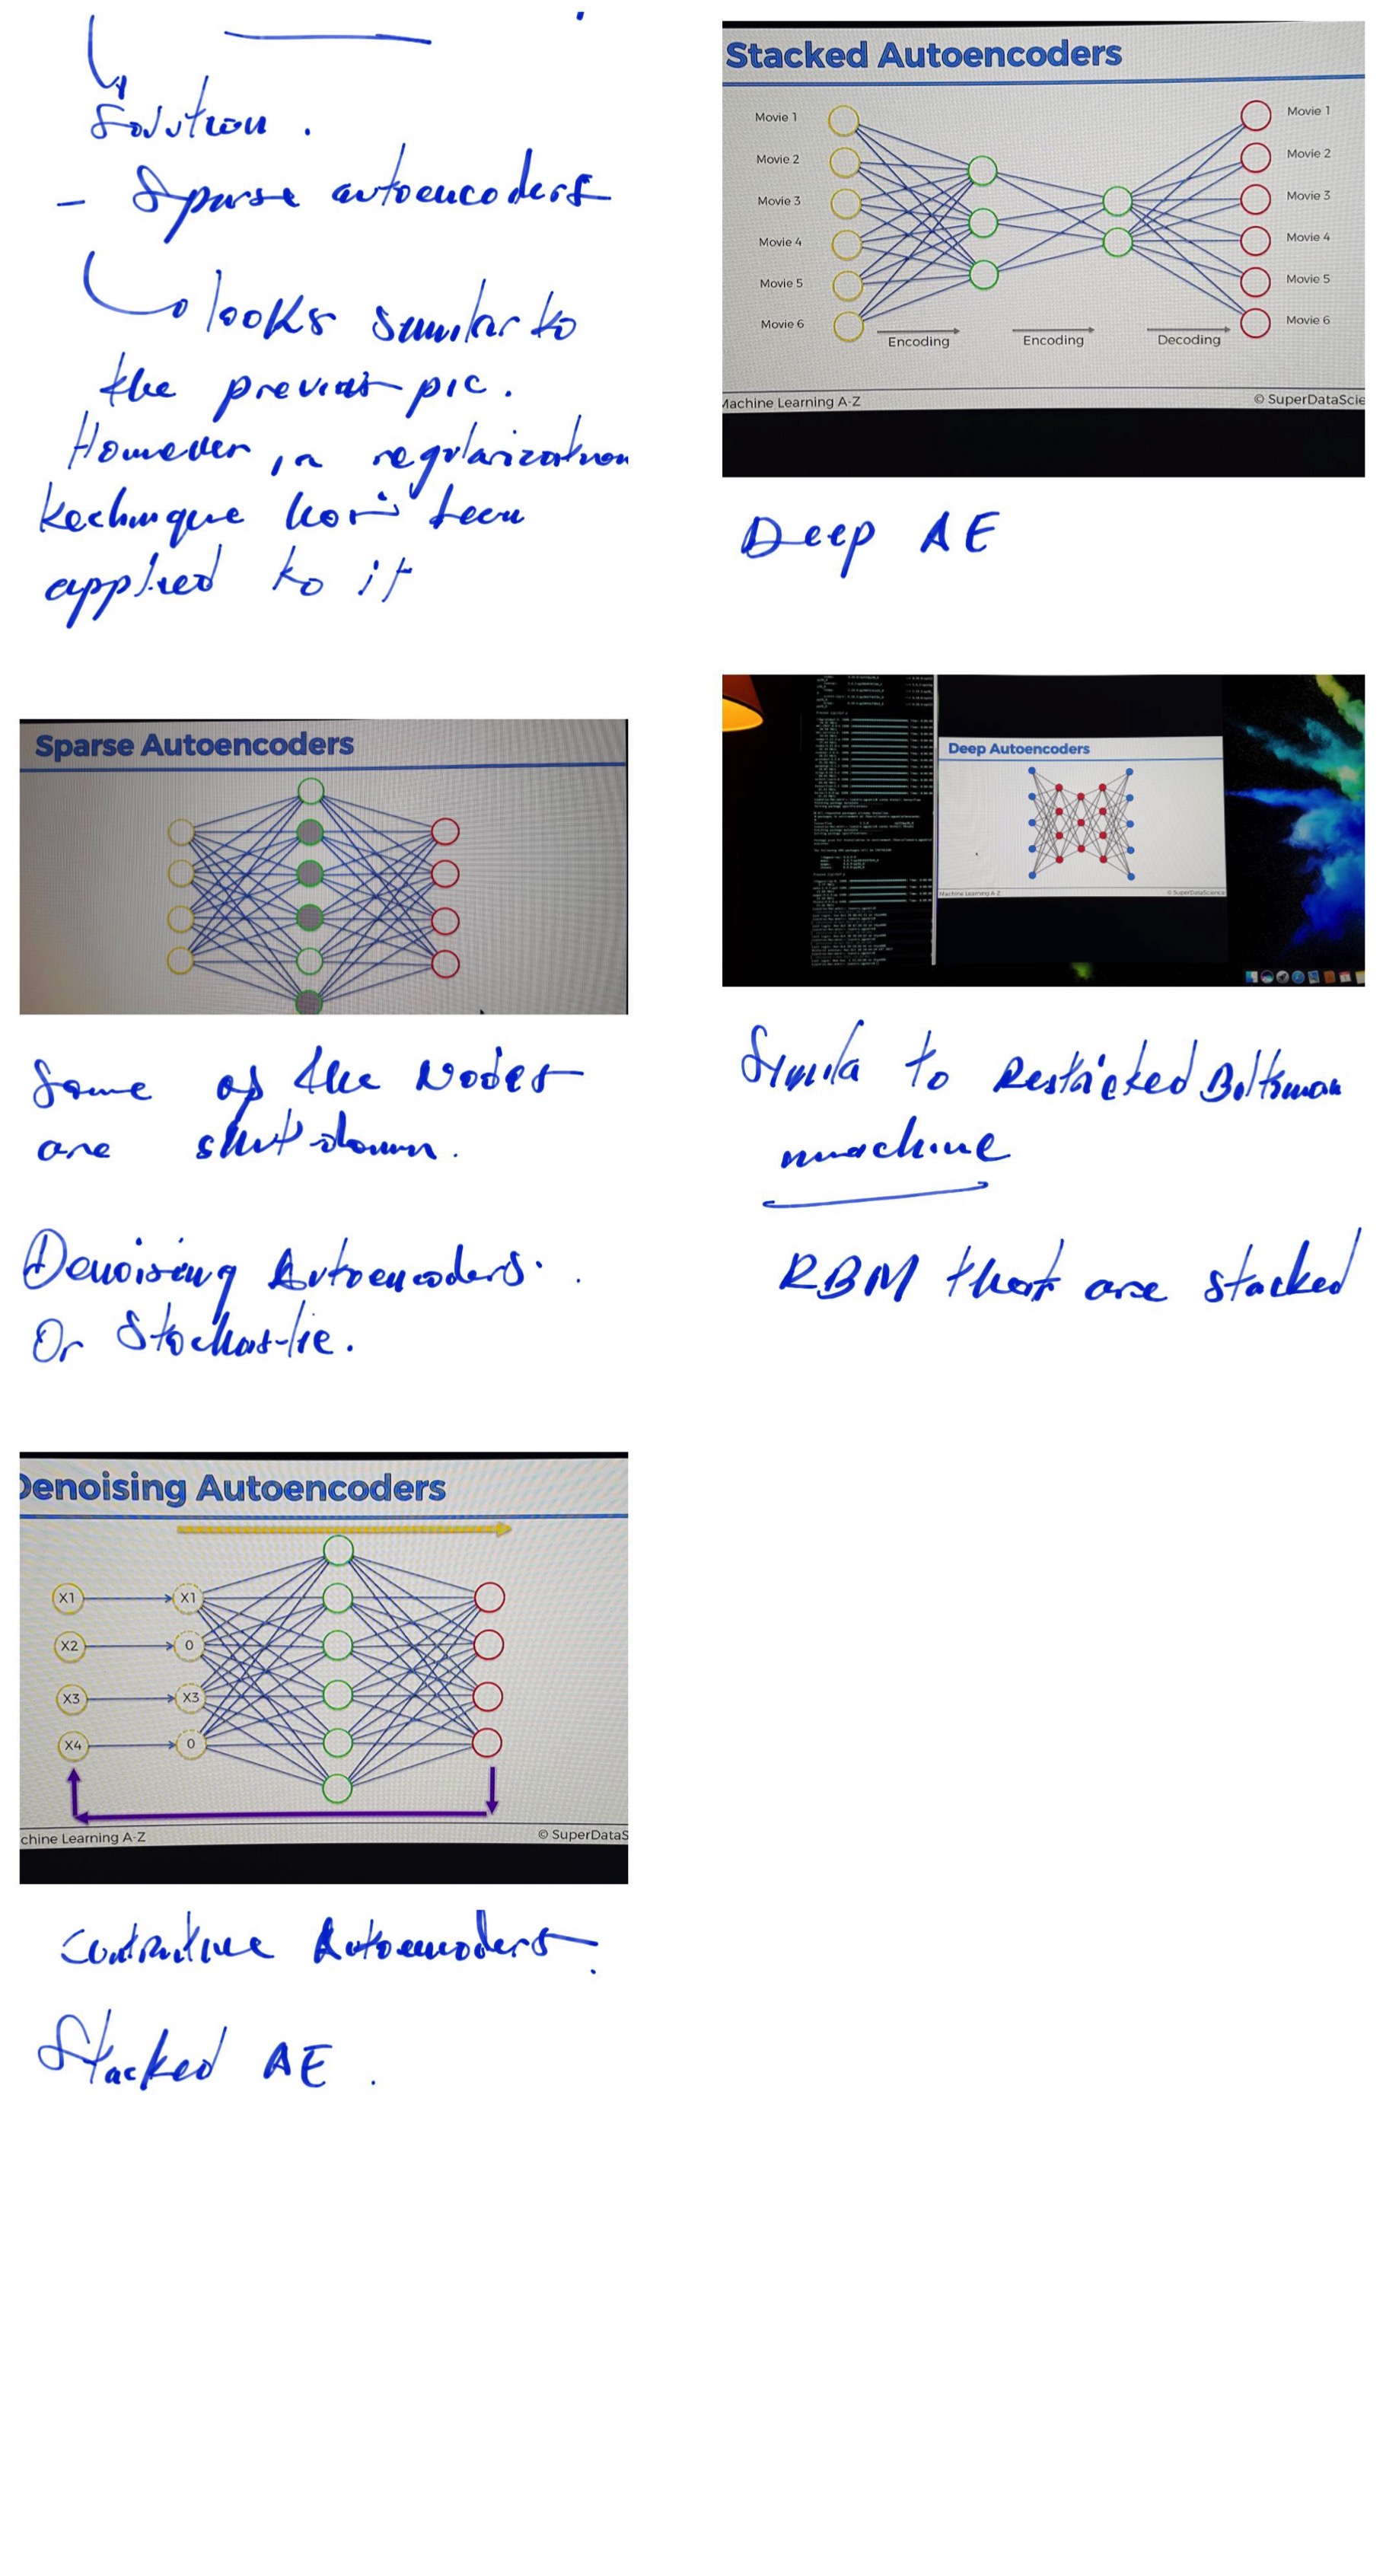 Solution.
- Sparse autoencoders
looks similar to
the previous pic.
However, a regularization
technique has been
applied to it
Sparse Autoencoders
Some of the Nodes
are shut down.
Denoising Autoencoders.
Or Stochastic.
Denoising Autoencoders
X1 X1
X2 0
X3 X3
X4 0
chine Learning A-Z © SuperDataS
Contractive Autoencoders.
Stacked AE.
Stacked Autoencoders
Movie 1 Movie 1
Movie 2 Movie 2
Movie 3 Movie 3
Movie 4 Movie 4
Movie 5 Movie 5
Movie 6 Movie 6
Encoding Encoding Decoding
Machine Learning A-Z © SuperDataScie
Deep AE
Deep Autoencoders
Machine Learning A-Z © SuperDataScience
Simila to Restricked Boltsman
machine
RBM that are stacked